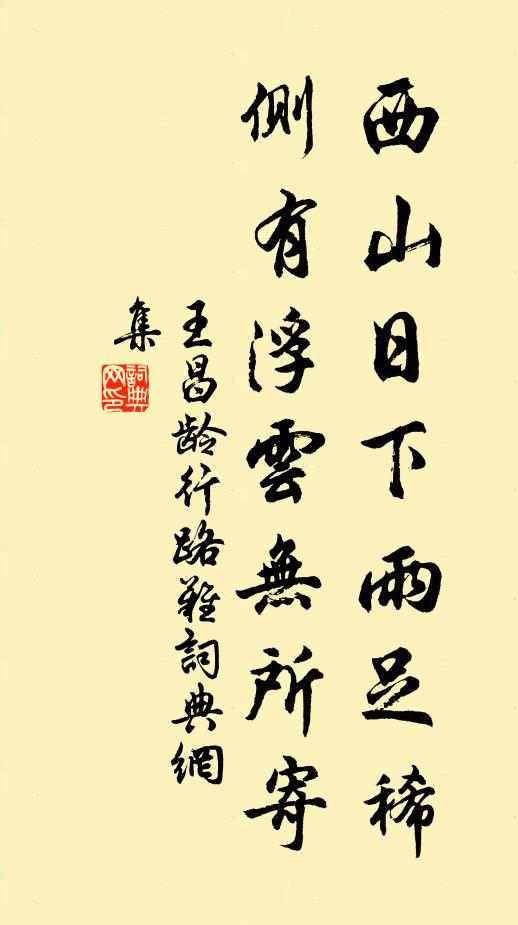 西山日下雨足稀
側有浮雲無所寄
王昌齡行路難詞典網
集
詞典
网印